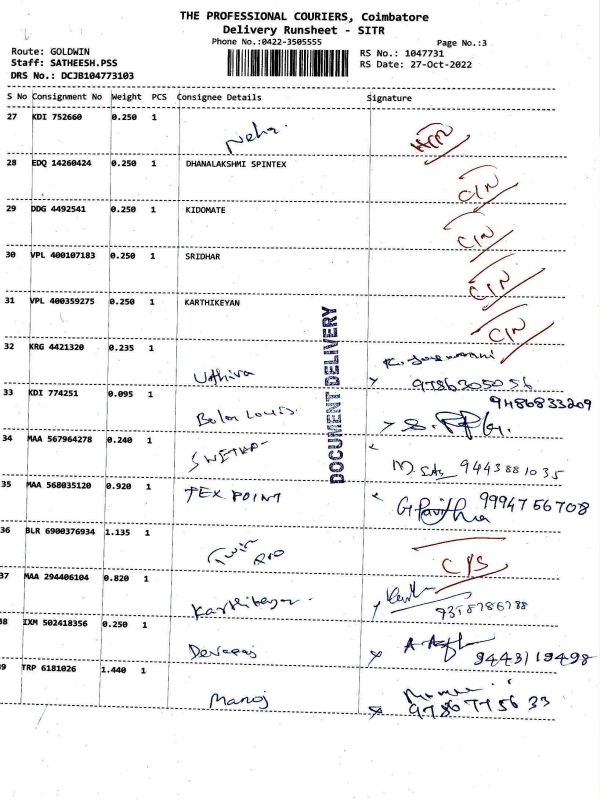 THE PROFESSIONAL COURIERS, Coimbatore
Delivery Runsheet - SITR
Phone No.:0422-3505555
Page No.:3
Route: GOLDWIN
RS No.: 1047731
Staff: SATHEESH.PSS
RS Date: 27-Oct-2022
DRS No.: DCJB104773103
S No Consignment No Weight PCS Consignee Details Signature
27 KDI 752660 0.250 1 Neha.
28 EDQ 14260424 0.250 1 DHANALAKSHMI SPINTEX C/N
29 DDG 4492541 0.250 1 KIDOMATE C/N
30 VPL 400107183 0.250 1 SRIDHAR C/N
31 VPL 400359275 0.250 1 KARTHIKEYAN C/N
DOCUMENT DELIVERY
32 KRG 4421320 0.235 1 Uthira 9786305056
33 KDI 774251 0.095 1 9486833209
34 MAA 567964278 0.240 1 9443881035
35 MAA 568035120 0.920 1 TEX POINT G Pavithra 9994756708
36 BLR 6900376934 1.135 1 C/S
37 MAA 294406104 0.820 1
38 IXM 502418356 0.250 1 Devaraj 9443119498
39 TRP 6181026 1.440 1 Manoj